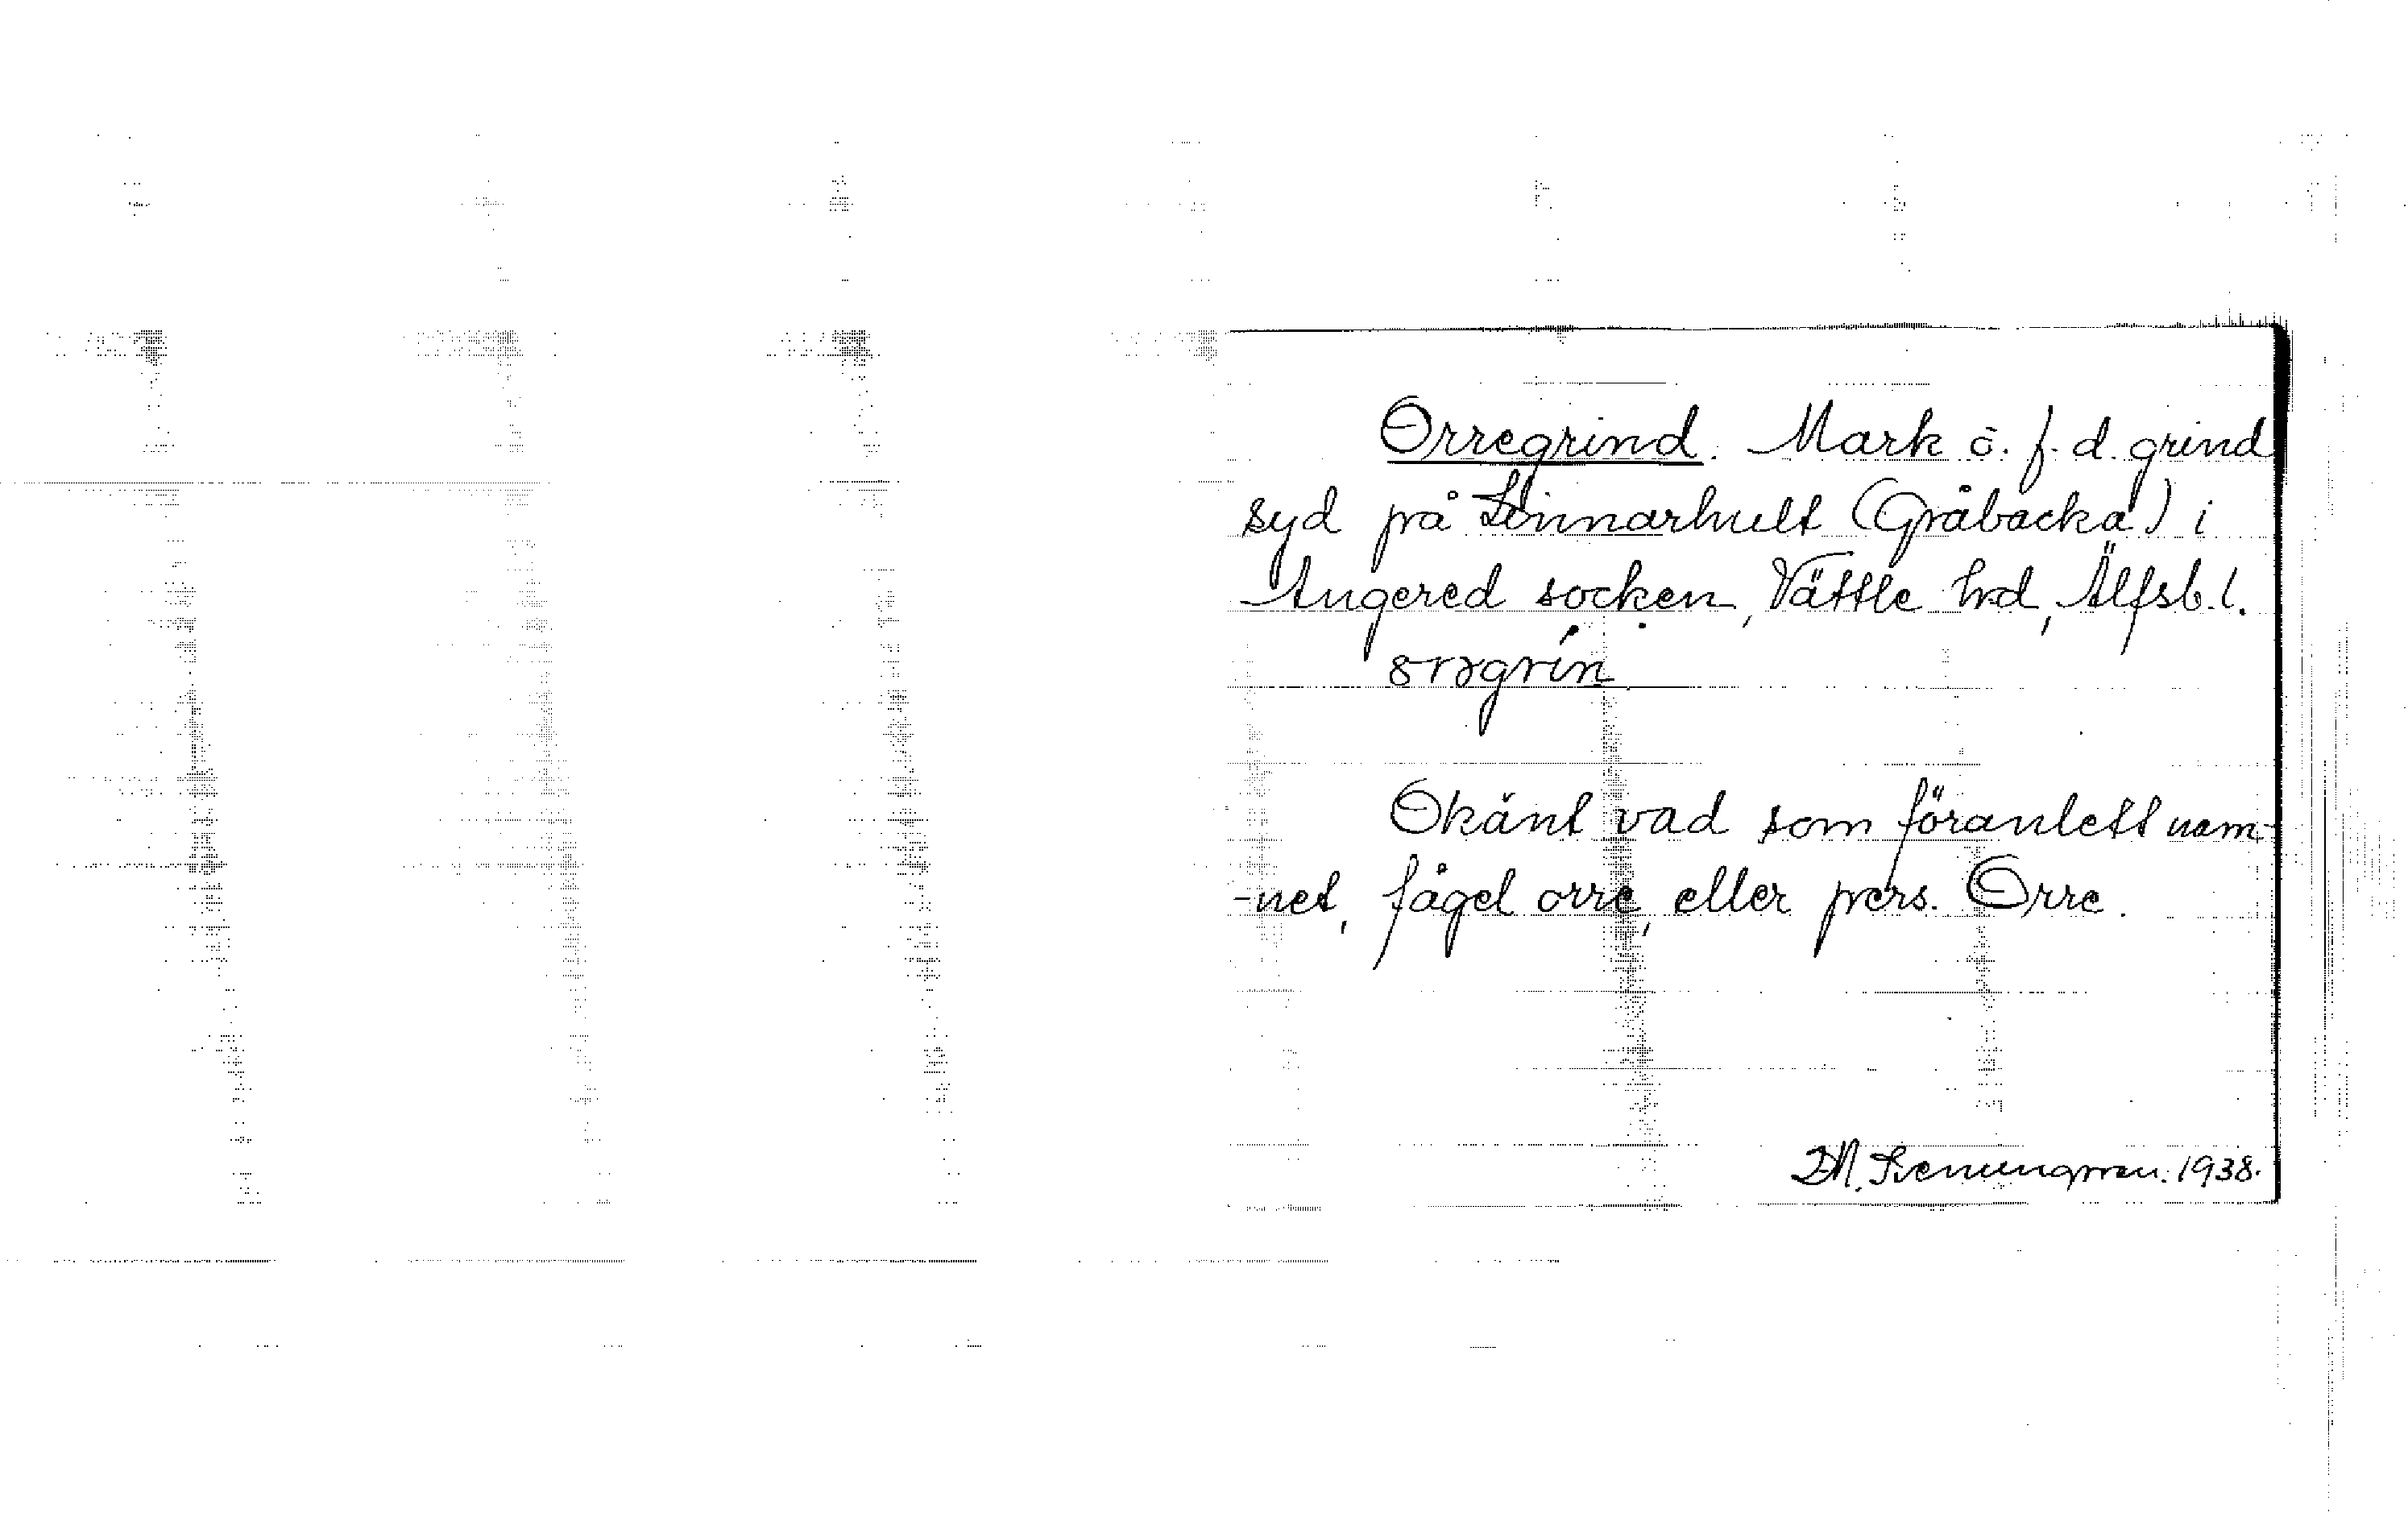 Orregrind. Mark o. f. d. grind
syd på Linnarhult (Gråbacka) i
Angered socken, Vättle hrd, Älfsb. l.
Okänt vad som föranlett nam-
-net, fågel orre, eller pers. Orre.
1938.